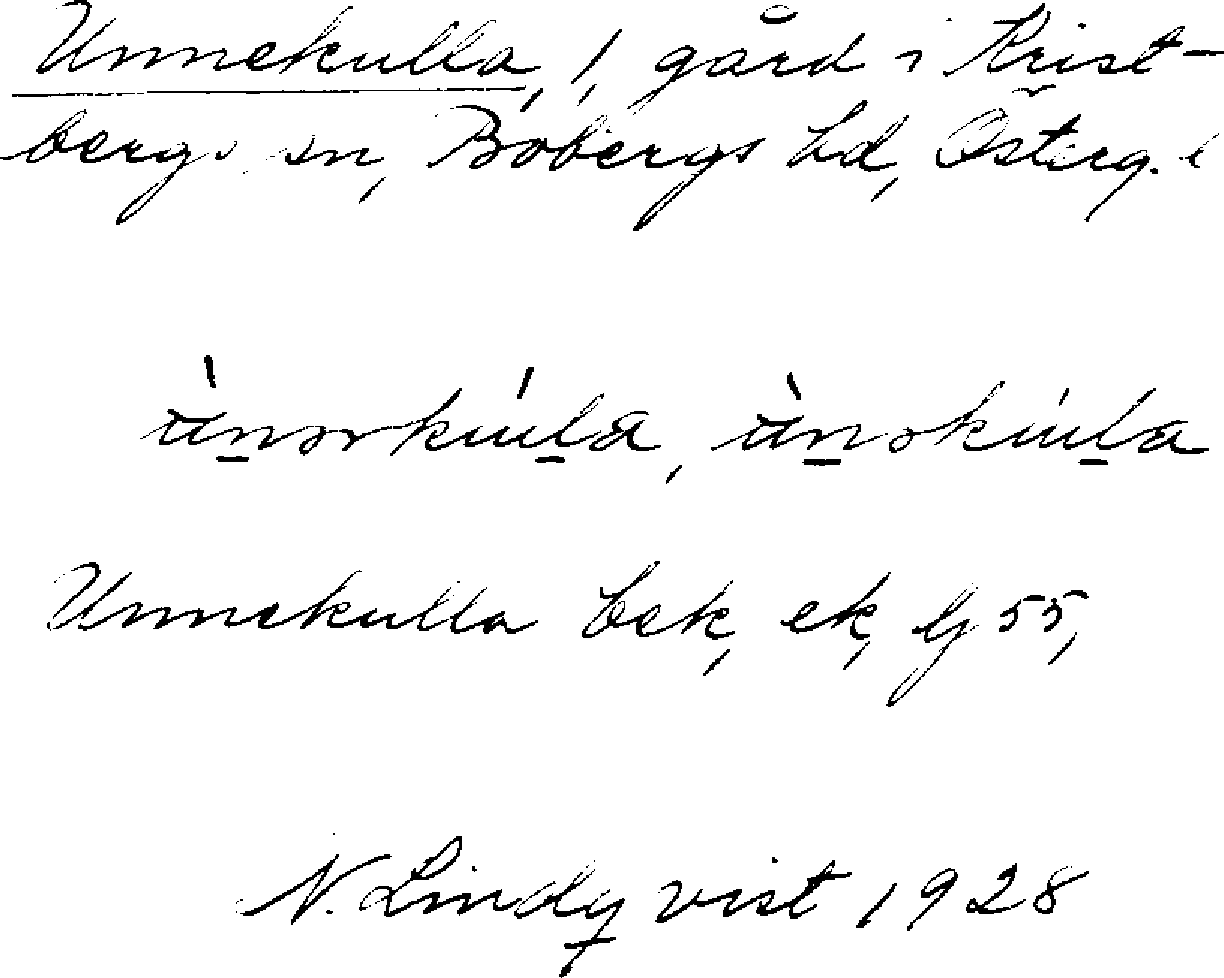 Unnekulla, 1, gård i Krist-
bergs sn, Bobergs hd, Österg. l
ùnərkúla, ùnəkúla
Unnekulla bek, ek, Gj 55,
N. Lindqvist 1928